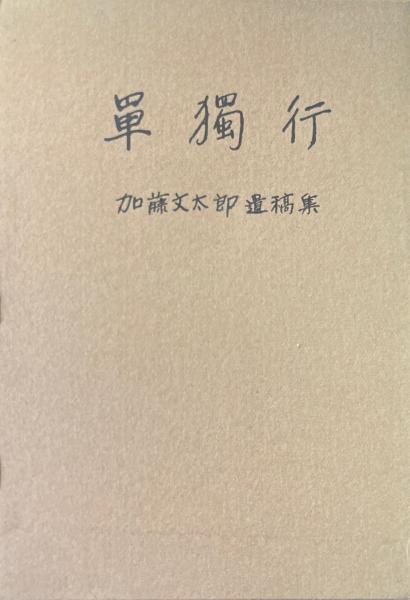 單獨行
加藤文太郎遺稿集